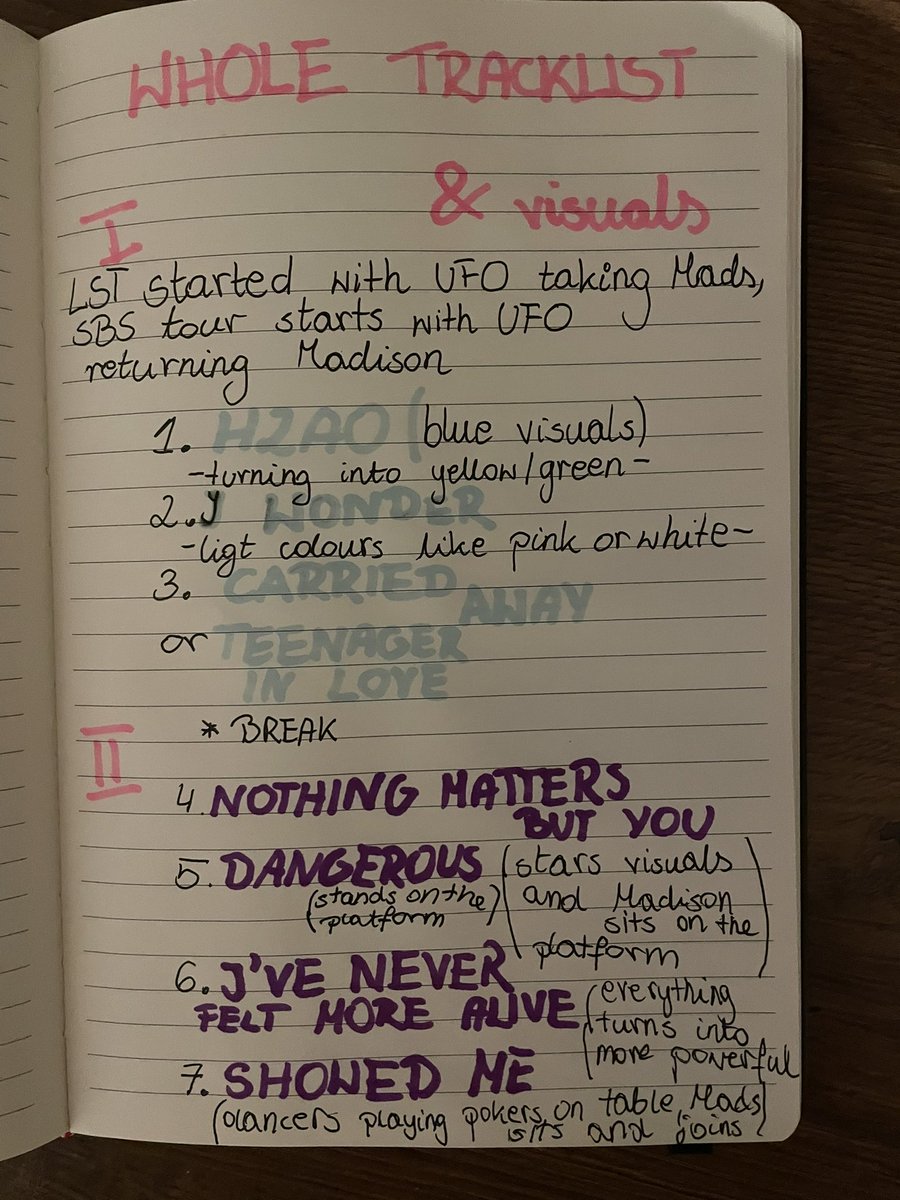 WHOLE TRACKLIST
& visuals
I
LST started with UFO taking Mads,
SBS tour starts with UFO
returning Madison
1. HZAO (blue visuals)
-turning into yellow/green-
2. I WONDER
-ligt colours like pink or white-
3. CARRIED AWAY
or TEENAGER
IN LOVE
* BREAK
II
4. NOTHING MATTERS
BUT YOU
5. DANGEROUS (stars visuals
(stands on the) and Madison
(platform sits on the
platform)
6. I'VE NEVER
FELT MORE ALIVE (everything
turns into
more powerful
7. SHOWED ME
(dancers playing pokers on table, Mads
sits and joins)